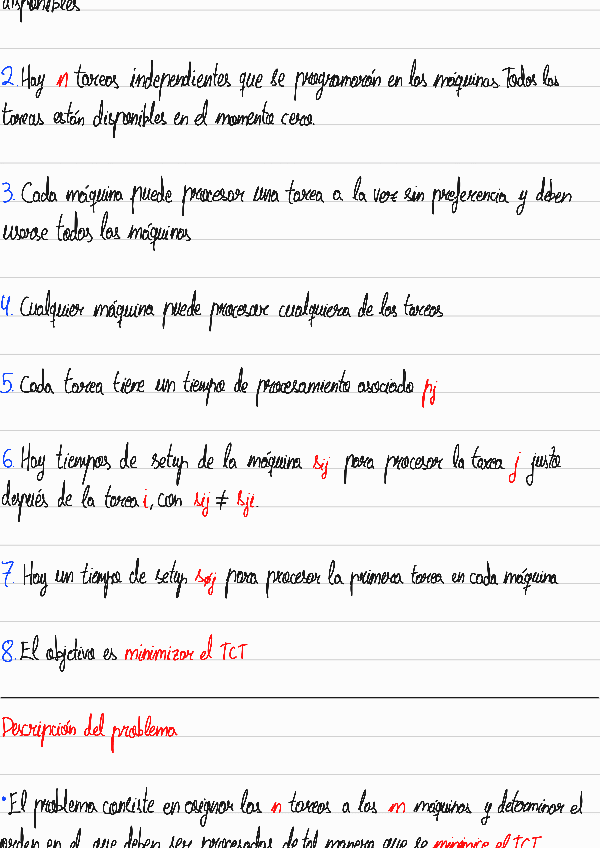 disponibles
2. Hay n tareas independientes que se programarán en las máquinas Todas las
tareas están disponibles en el momento cero.
3. Cada máquina puede procesar una tarea a la vez sin preferencia y deben
usarse todas las máquinas
4. Cualquier máquina puede procesar cualquiera de las tareas
5. Cada tarea tiene un tiempo de procesamiento asociado pj
6. Hay tiempos de setup de la máquina sij para procesar la tarea j justo
después de la tarea i, con sij ≠ sji.
7. Hay un tiempo de setup s0j para procesar la primera tarea en cada máquina
8. El objetivo es minimizar el TCT
Descripción del problema
• El problema consiste en asignar las n tareas a las m máquinas y determinar el
orden en el que deben ser procesadas de tal manera que se minimice el TCT